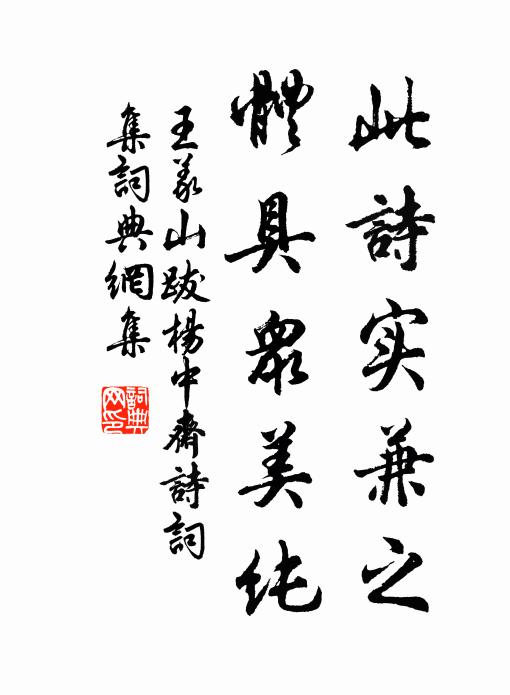 此詩实兼之
體具眾美纯
王义山跋楊中齋詩詞
集詞典網集
詞典
网印